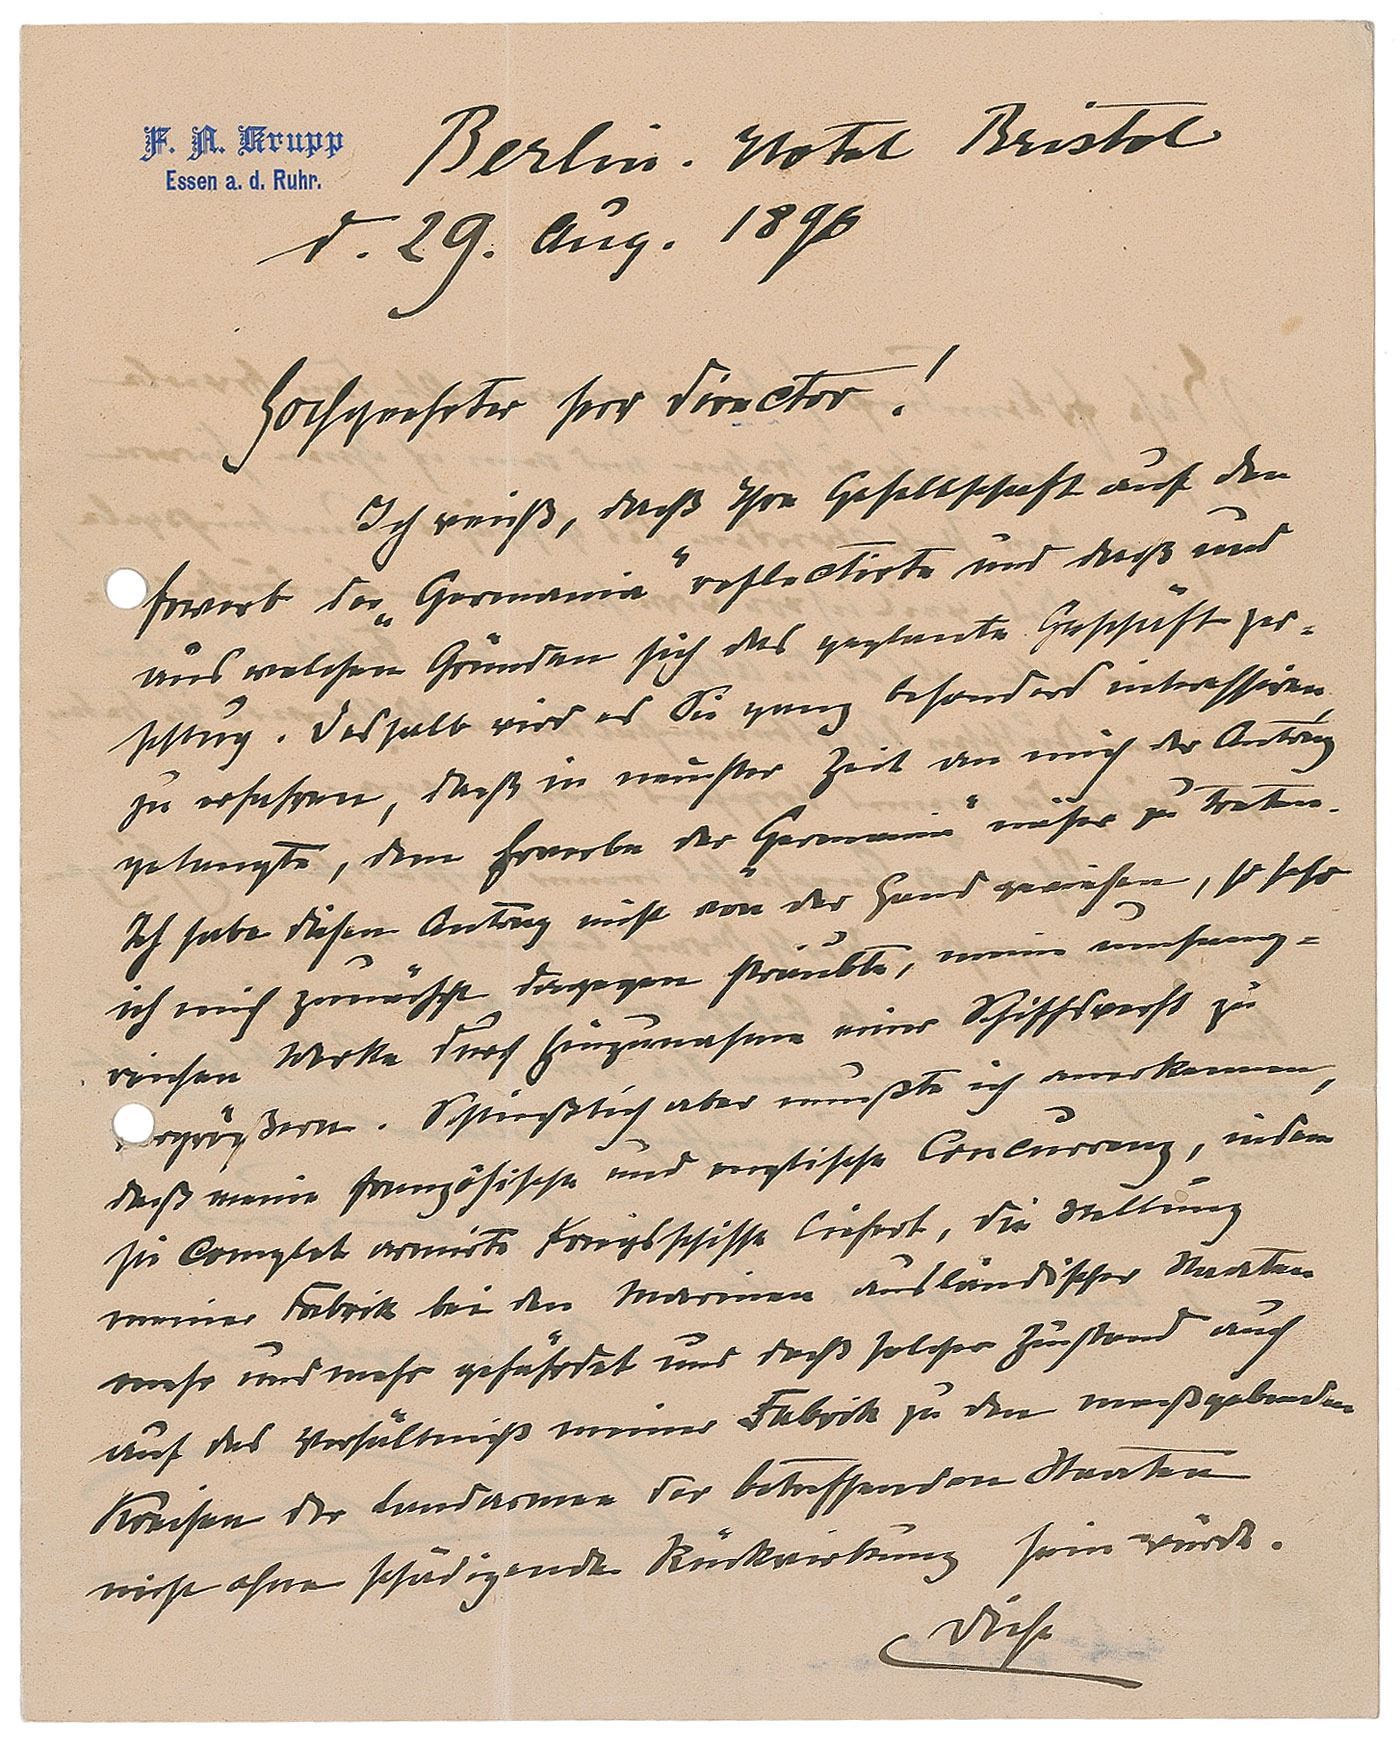 F. A. Krupp
Essen a. d. Ruhr.
Berlin. Hotel Bristol
d. 29. Aug. 1896
Hochgeehrter Herr Director!
Ich weiß, daß Ihre Gesellschaft auf den
Erwerb der „Germania“ reflectirte und daß und
aus welchen Gründen sich das geplante Geschäft zer-
schlug. Deshalb wird es Sie ganz besonders interessiren,
zu erfahren, daß in neuester Zeit an mich der Antrag
gelangte, dem Erwerbe der „Germania“ näher zu treten.
Ich habe diesen Antrag nicht von der Hand gewiesen, so sehr
ich mich zunächst dagegen sträubte, meine umfang-
reichen Werke durch Hinzunahme einer Schiffswerft zu
vergrößern. Schließlich aber mußte ich anerkennen,
daß meine französische und englische Concurrenz, indem
sie complet armirte Kriegsschiffe liefert, die Stellung
meiner Fabrik bei den Marinen ausländischer Staaten
mehr und mehr gefährdet und daß solcher Zustand auch
auf das Verhältniß meiner Fabrik zu den maßgebenden
Kreisen der Landarmee der betreffenden Staaten
nicht ohne schädigende Rückwirkung sein würde.
Diese